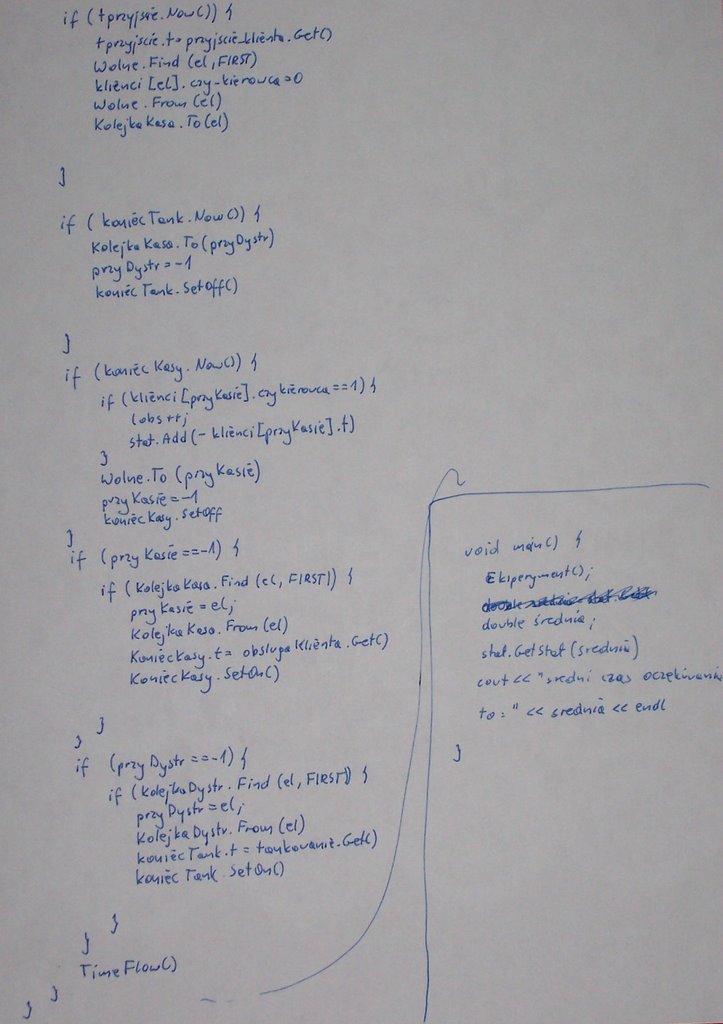 if (tprzyjscie.Now()) {
tprzyjscie.t = przyjscie_klienta.Get()
Wolne.Find (el, FIRST)
klienci [el].czy-kierowca=0
Wolne.From (el)
KolejkaKasa.To(el)
}
if (koniecTank.Now()) {
KolejkaKasa.To(przyDystr)
przyDystr=-1
koniecTank.SetOff()
}
if (koniecKasy.Now()) {
if (klienci[przyKasie].czykierowca==1) {
lobs++;
stat.Add(- klienci[przyKasie].t)
}
Wolne.To (przyKasie)
przyKasie=-1
koniecKasy.SetOff
}
if (przyKasie==-1) {
if (KolejkaKasa.Find (el, FIRST)) {
przyKasie = el;
KolejkaKasa.From (el)
KoniecKasy.t = obslugaKlienta.Get()
KoniecKasy.SetOn()
}
}
if (przyDystr==-1) {
if (KolejkaDystr.Find (el, FIRST)) {
przyDystr=el;
KolejkaDystr.From (el)
koniecTank.t = tankowanie.Get()
koniecTank.SetOn()
}
}
TimeFlow()
}
}
void main() {
Eksperyment();
double średnia;
stat.GetStat (średnia)
cout << "średni czas oczekiwania
to:" << średnia << endl
}